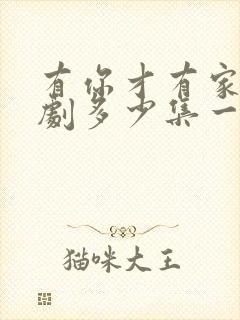 有你才有家
劇多少集一
猫咪大王